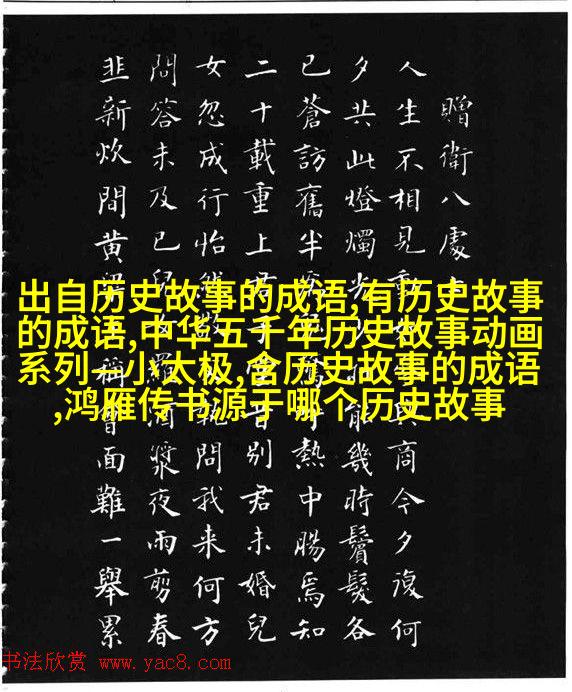 贈衛八處
人生不相見動
商今夕復何
夕共此燈燭光
幾時鬢髮各
已蒼訪舊半
熱中腸焉知
二十載重上
別君未婚兒
女忽成行怡
問我來何方
問答未及已
酒漿夜雨剪春
韭新炊間黃
面難一舉累
出自历史故事的成语,有历史故事
的成语,中华五千年历史故事动画
系列一小太极,含历史故事的成语
,鸿雁传书源于哪个历史故事
书法欣赏 www.yac8.com